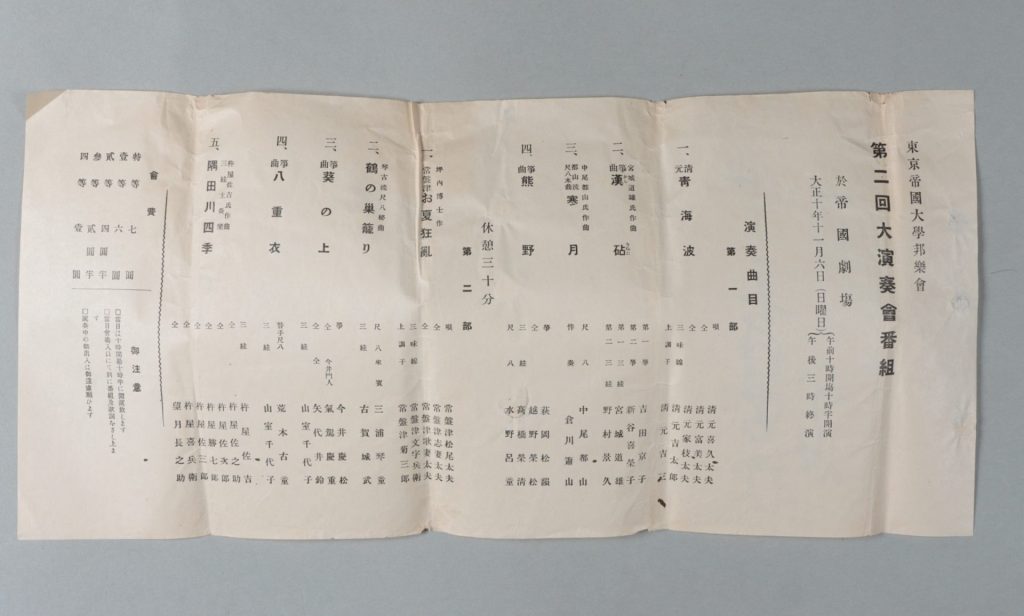 東京帝國大學邦樂會
第二回大演奏會番組
於帝國劇塲
大正十年十一月六日(日曜日)
午前十時開塲十時半開演
午後三時終演
演奏曲目
第一部
一、清元 青海波
唄 清元喜久太夫
仝 清元富美太夫
仝 清元家枝太夫
三味線 清元吉太郎
上調子 清元吉三
二、箏曲 漢砧
宮城道雄氏作曲
第一箏 吉田京子
第二箏 新谷喜榮子
第一三絃 宮城道雄
第二三絃 野村景久
三、都山流尺八本曲 寒月
中尾都山氏作曲
尺八 中尾都山
作奏 倉川簫山
四、箏曲 熊野
箏 萩岡松韻
仝 越野榮松
三絃 高橋榮清
尺八 水野呂童
休憩三十分
第二部
一、常盤津 お夏狂亂
坪内博士作
唄 常盤津松尾太夫
仝 常盤津志妻太夫
仝 常盤津歌妻太夫
三味線 常盤津文字兵衛
上調子 常盤津菊三郎
二、鶴の巣籠り
琴古流尺八秘曲
尺八 來賓 三浦琴童
三絃 古賀城武
三、箏曲 葵の上
箏 今井慶松
仝 今井門人 氣賀慶重
仝 仝 矢代井鈴
三絃 山室千代子
四、箏曲 八重衣
替手尺八 荒木古童
三絃 山室千代子
五、隅田川四季
杵屋佐吉氏作曲
三絃主奏樂
三絃 杵屋佐吉
仝 杵屋佐之助
仝 杵屋佐次郎
仝 杵屋勝七郎
仝 杵屋佐三郎
仝 杵屋喜兵衛
仝 望月長之助
會費
特等 七圓
壹等 六圓
貳等 四圓半
參等 貳圓半
四等 壹圓
御注意
□當日は十時開塲十時半に開演致します
□當日會塲入口にて別に番組及歌詞をさし上ます
□演奏中の御出入は御遠慮願ひます